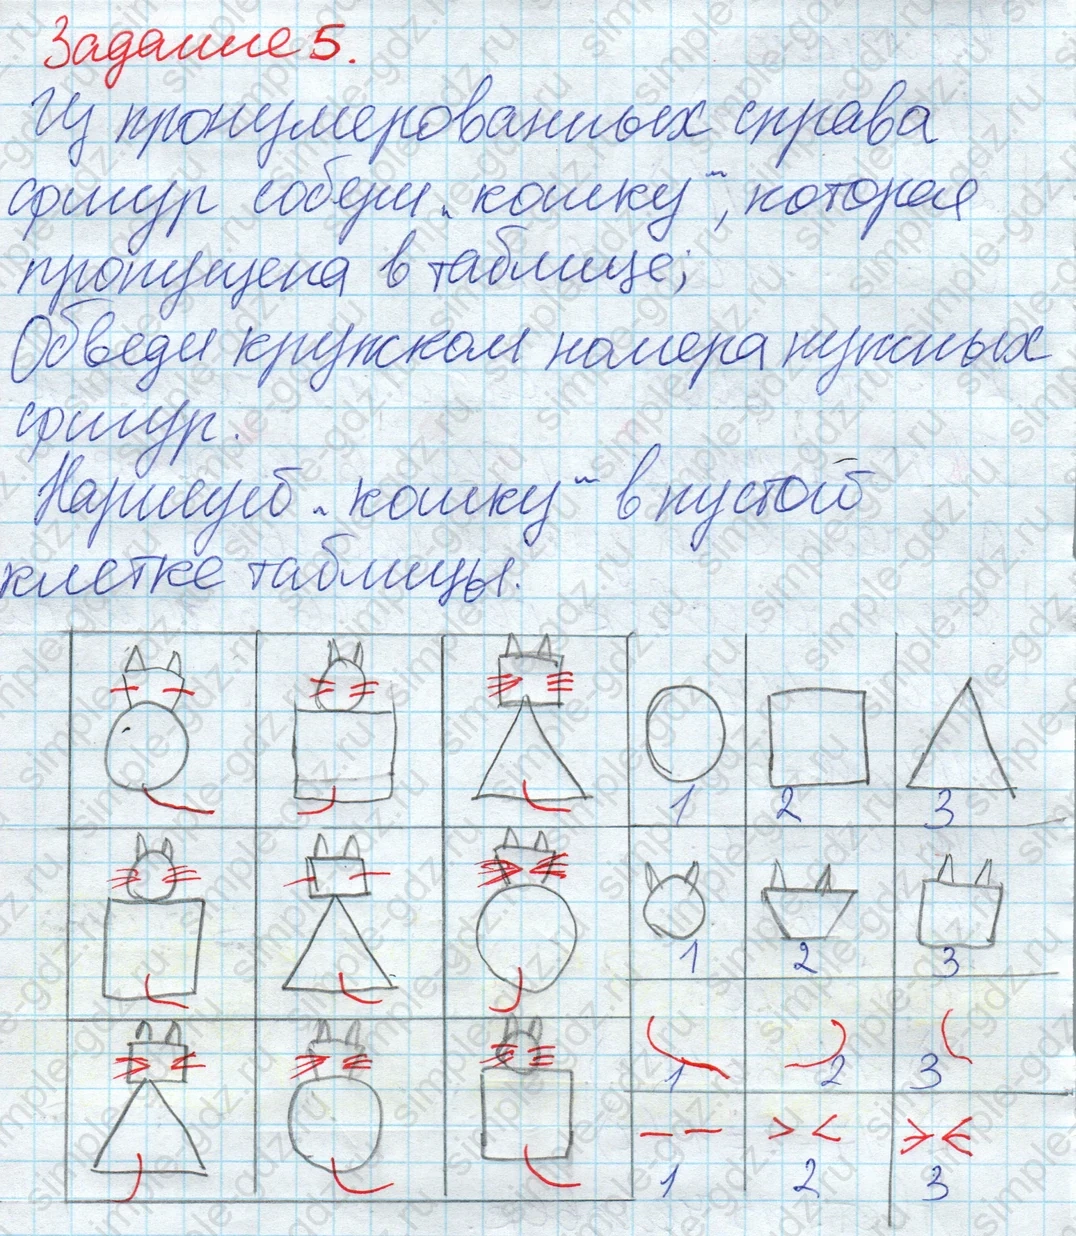 Задание 5.
Из пронумерованных справа
фигур собери „кошку“, которая
пропущена в таблице;
Обведи кружком номера нужных
фигур.
Нарисуй „кошку“ в пустой
клетке таблицы.
1 2 3
1 2 3
1 2 3
1 2 3
simple-gdz.ru